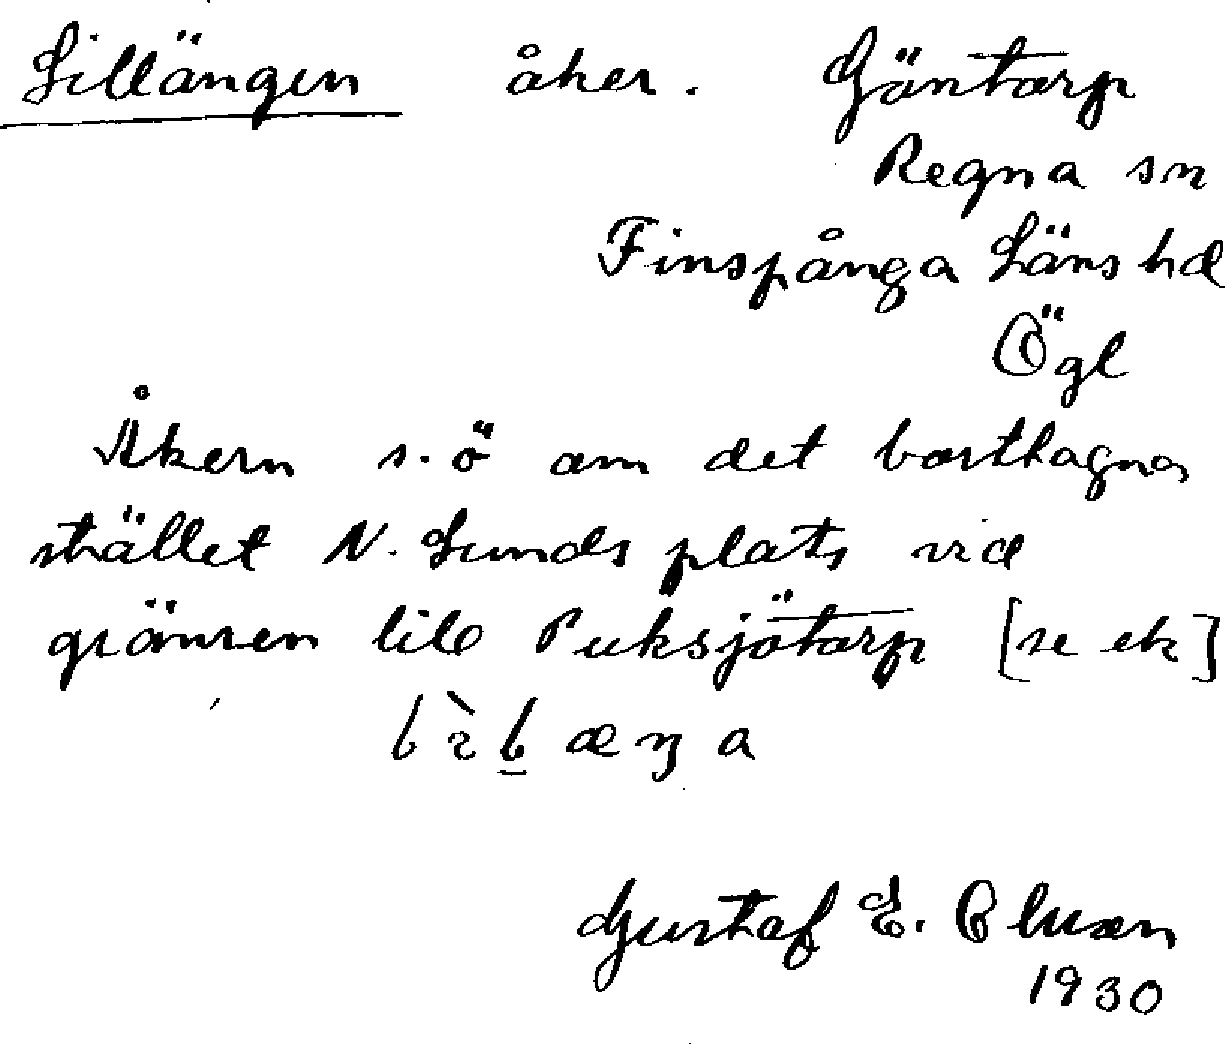 Lillängen åker. Göntorp
Regna sn
Finspånga Läns hd
Ögl
Åkern s.ö om det borttagna
stället N. Lunds plats vid
gränsen till Puksjötorp [se ek]
Gustaf E.
1930